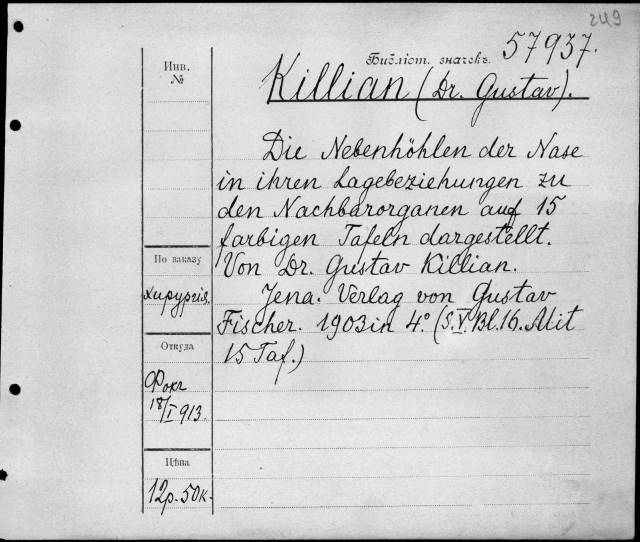 249
57937.
Библіот. значекъ.
Killian (Dr. Gustav).
Инв.
№
Die Nebenhöhlen der Nase
in ihren Lagebeziehungen zu
den Nachbarorganen auf 15
farbigen Tafeln dargestellt.
Von Dr. Gustav Killian.
Jena. Verlag von Gustav
Fischer. 1903 in 4.° (S.V. Bl. 16. Mit
15 Taf.)
По заказу
хирургія.
Откуда
Фокъ
18/I 913.
Цѣна
12р. 50к.